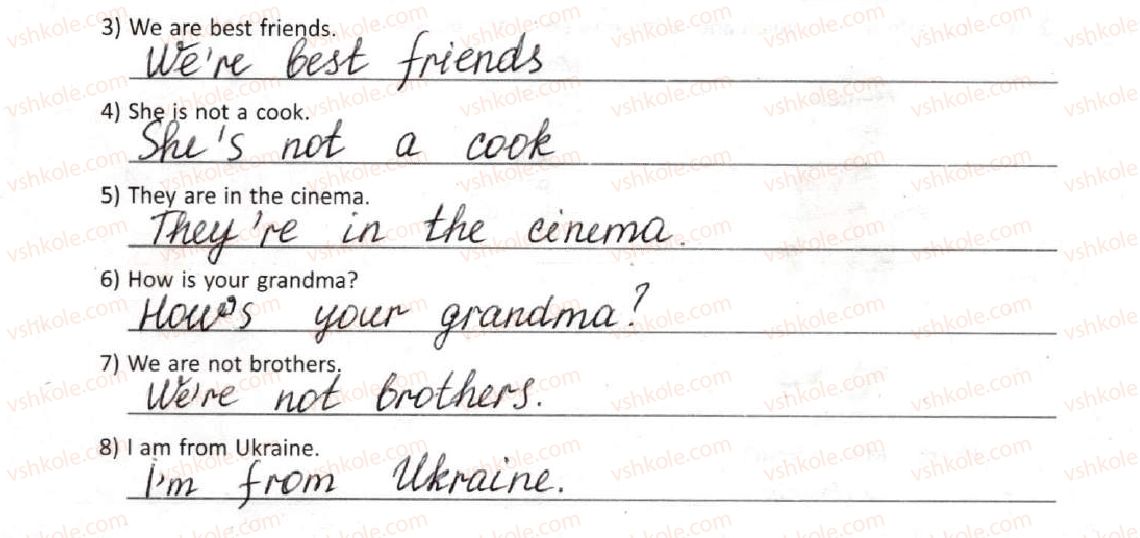 3) We are best friends.
We're best friends
4) She is not a cook.
She's not a cook
5) They are in the cinema.
They're in the cinema.
6) How is your grandma?
How's your grandma?
7) We are not brothers.
We're not brothers.
8) I am from Ukraine.
I'm from Ukraine.